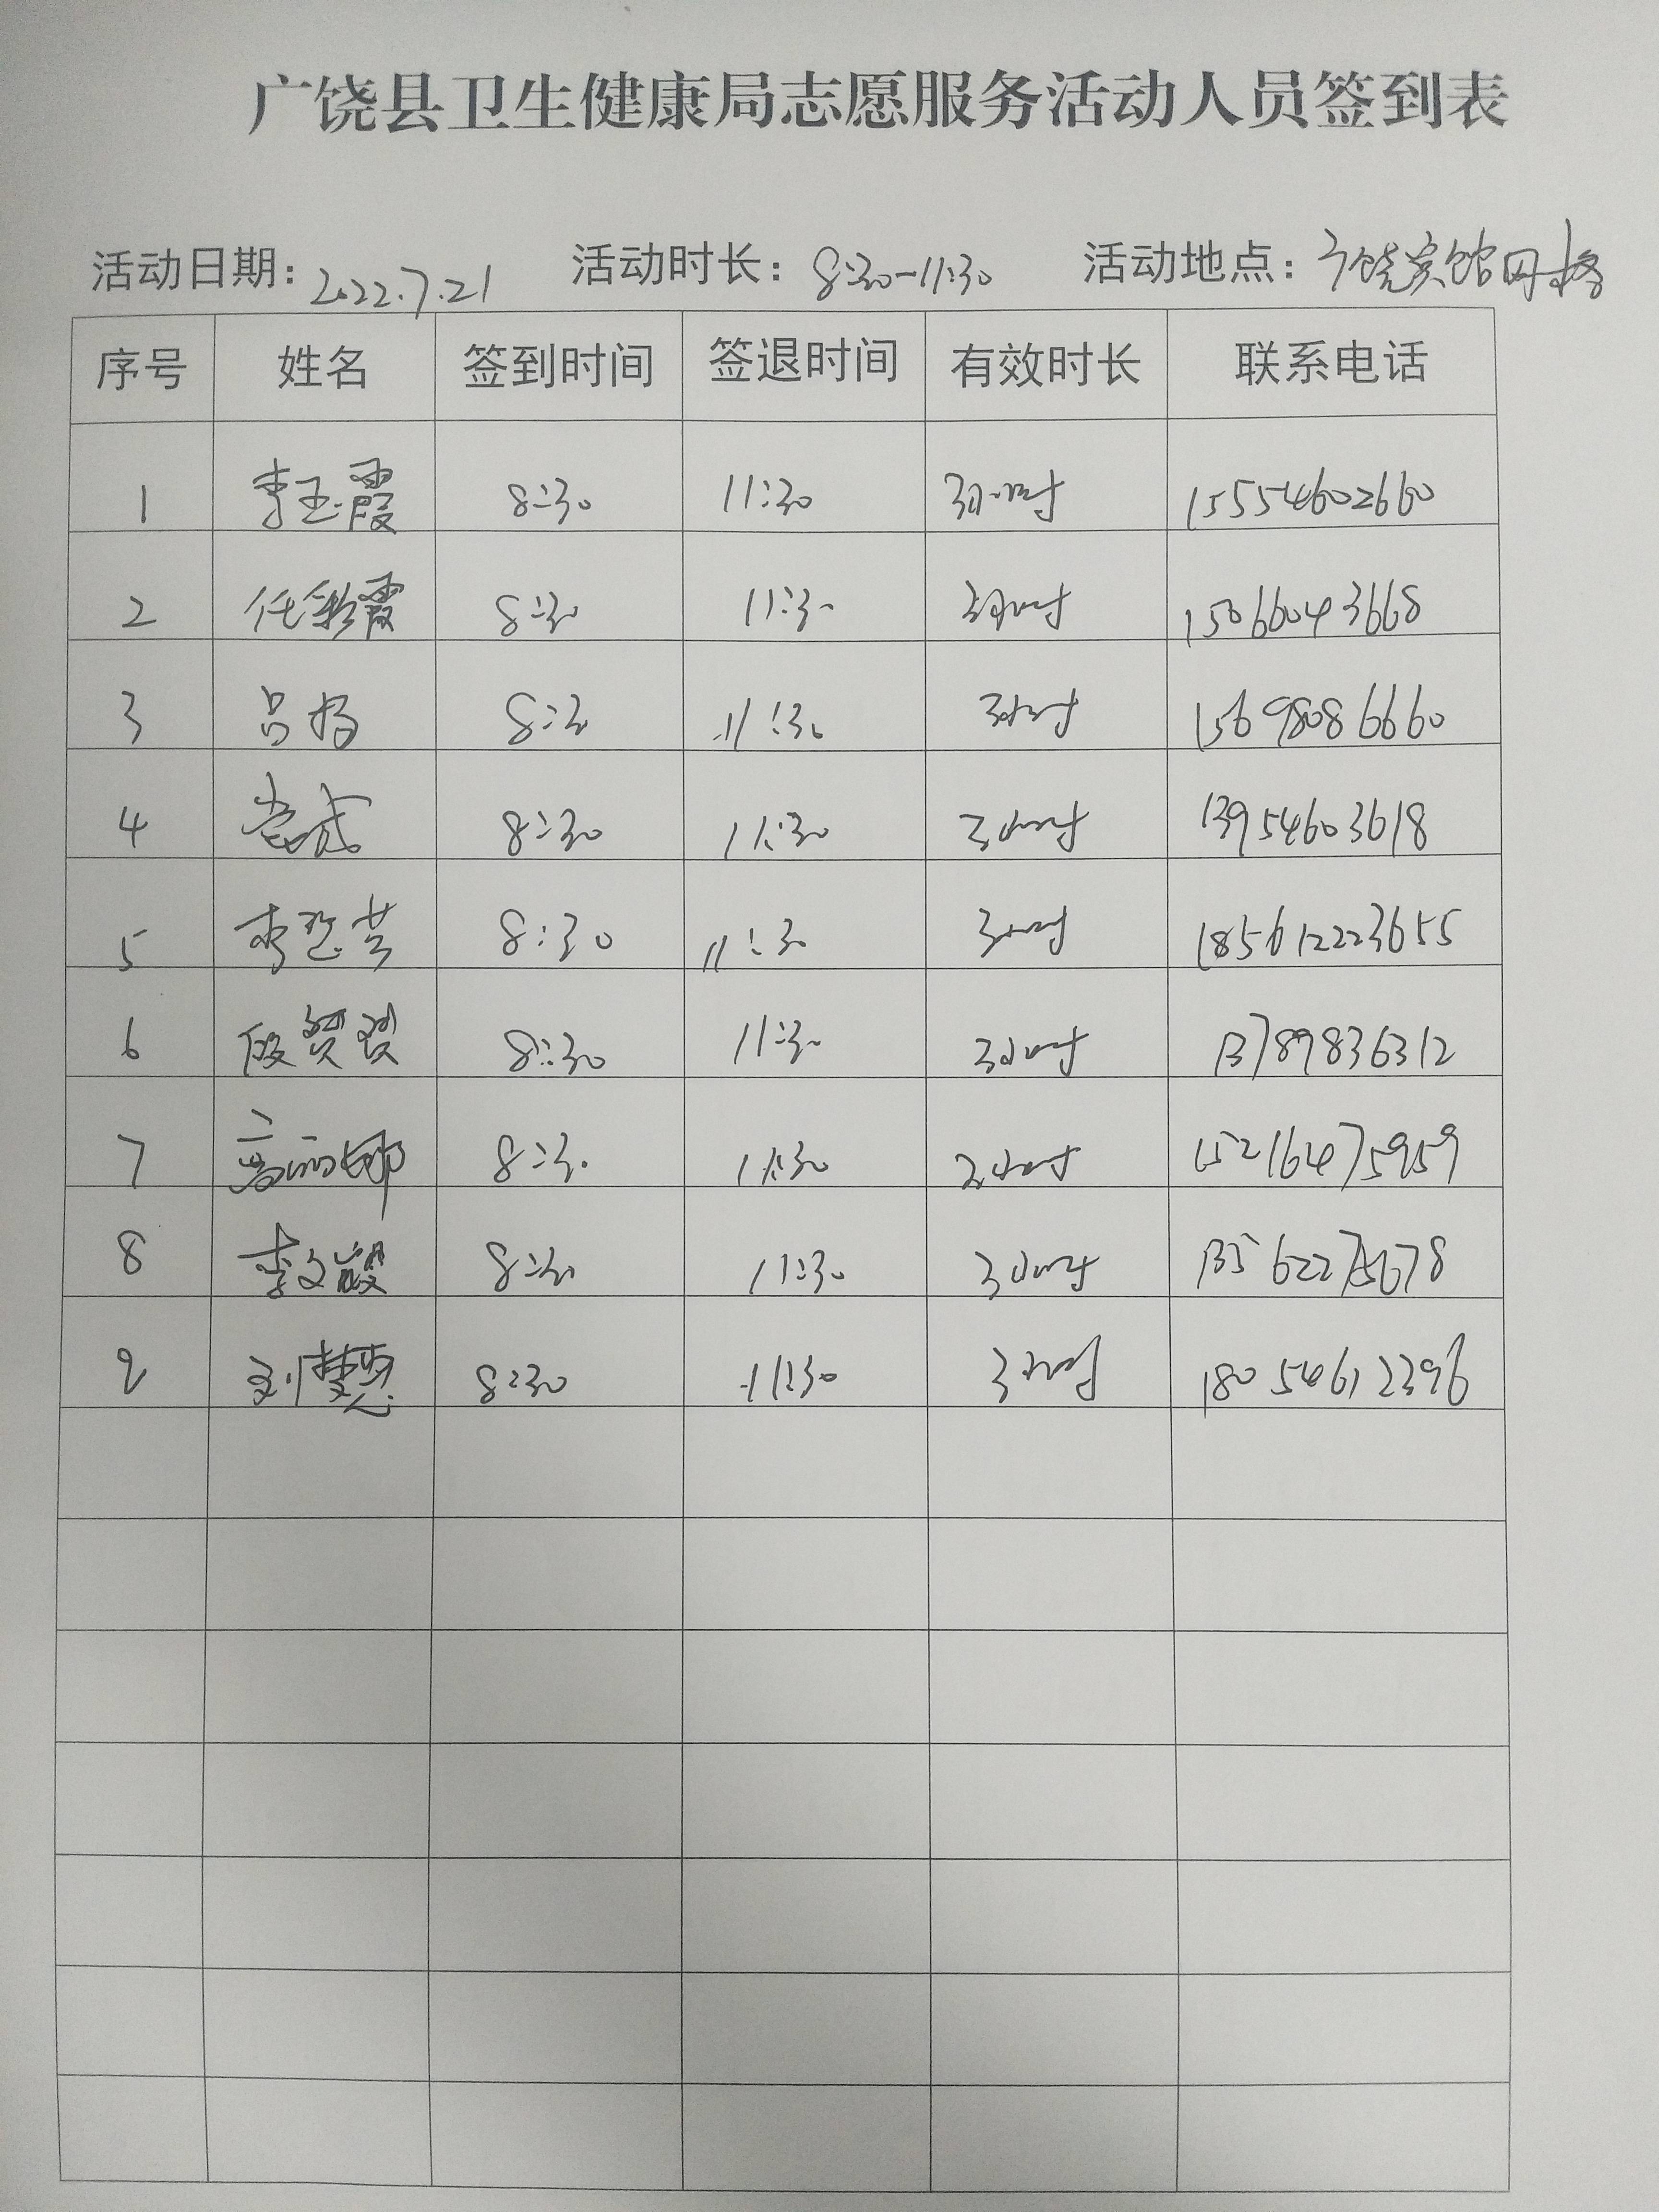 广饶县卫生健康局志愿服务活动人员签到表
活动日期：2022.7.21 活动时长：8:30-11:30 活动地点：广饶宾馆网格
序号 姓名 签到时间 签退时间 有效时长 联系电话
1 李玉霞 8:30 11:30 3小时 15554602660
2 任彩霞 8:30 11:30 3小时 15066043668
3 吕杨 8:30 11:30 3小时 15698086660
4 8:30 11:30 3小时 13954603618
5 李 芸 8:30 11:30 3小时 185612223655
6 段贤贤 8:30 11:30 3小时 13789836312
7 高丽娜 8:30 11:30 3小时 15216475959
8 李文 8:30 11:30 3小时
9 刘慧 8:30 11:30 3小时 18054612396